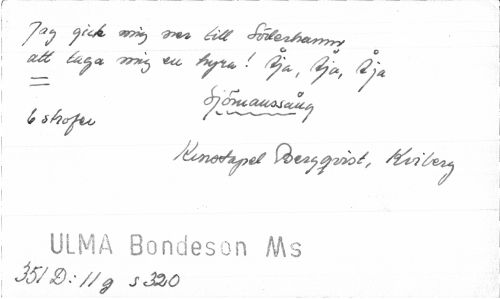 Jag gick mig ner till Söderhamn,
att taga mig en hyra! Tja, tja, tja
Sjömanssång
6 strofer
Bergqvist, Kviberg
ULMA Bondeson Ms
351 D: 11 g s 320